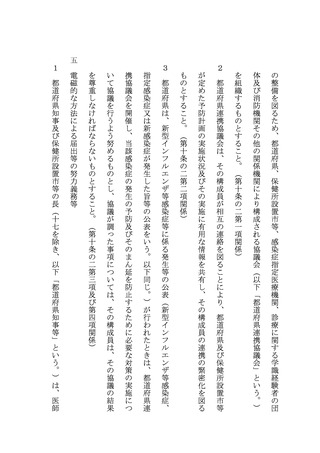 の整備を図るため、都道府県、保健所設置市等、感染症指定医療機関、診療に関する学識経験者の団
体及び消防機関その他の関係機関により構成される協議会（以下「都道府県連携協議会」という。）
を組織するものとすること。（第十条の二第一項関係）
２　都道府県連携協議会は、その構成員が相互の連絡を図ることにより、都道府県及び保健所設置市等
が定めた予防計画の実施状況及びその実施に有用な情報を共有し、その構成員の連携の緊密化を図る
ものとすること。（第十条の二第二項関係）
３　都道府県は、新型インフルエンザ等感染症等に係る発生等の公表（新型インフルエンザ等感染症、
指定感染症又は新感染症が発生した旨等の公表をいう。以下同じ。）が行われたときは、都道府県連
携協議会を開催し、当該感染症の発生の予防及びそのまん延を防止するために必要な対策の実施につ
いて協議を行うよう努めるものとし、協議が調った事項については、その構成員は、その協議の結果
を尊重しなければならないものとすること。（第十条の二第三項及び第四項関係）
五　電磁的な方法による届出等の努力義務等
１　都道府県知事及び保健所設置市等の長（十七を除き、以下「都道府県知事等」という。）は、医師